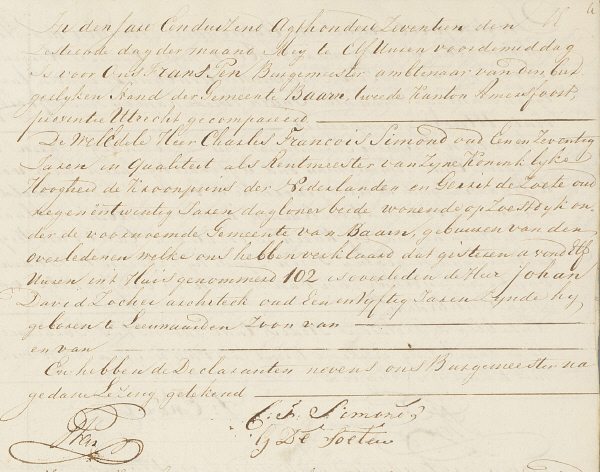 In den Jare Eenduizend Agthonderd Zeventien den
Zestiende dag der maand Mey te Elf Uuren voordemiddag
is voor Ons Frans Pen Burgemeester ambtenaar van den bur
gerlyken Stand der Gemeente Baarn, tweede Kanton Amersfoort,
provintie Utrecht gecompareerd
De WelEdele Heer Charles Francois Simond oud Eenen Zeventig
Jaren in Qualiteit als Rentmeester van Zyne Koninklyke
Hoogheid de Kroonprins der Nederlanden en Gerret de Zoete oud
negenëntwintig Jaren dagloner beide wonende op Zoestdyk on
der de voornoemde Gemeente van Baarn, gebuuren van den
overledenen welke ons hebben verklaard dat gisteren avond Elf
Uuren int Huis genommerd 102 is overleden de Heer Johan
David Zocher architeck oud Een en Vyftig Jaren Zynde hy
geboren te Leeuwaarden Zoon van
en van
En hebben de Declaranten nevens ons Burgemeester na
gedane Lezing getekend
C. F. Simond
G De Soeten
FPen